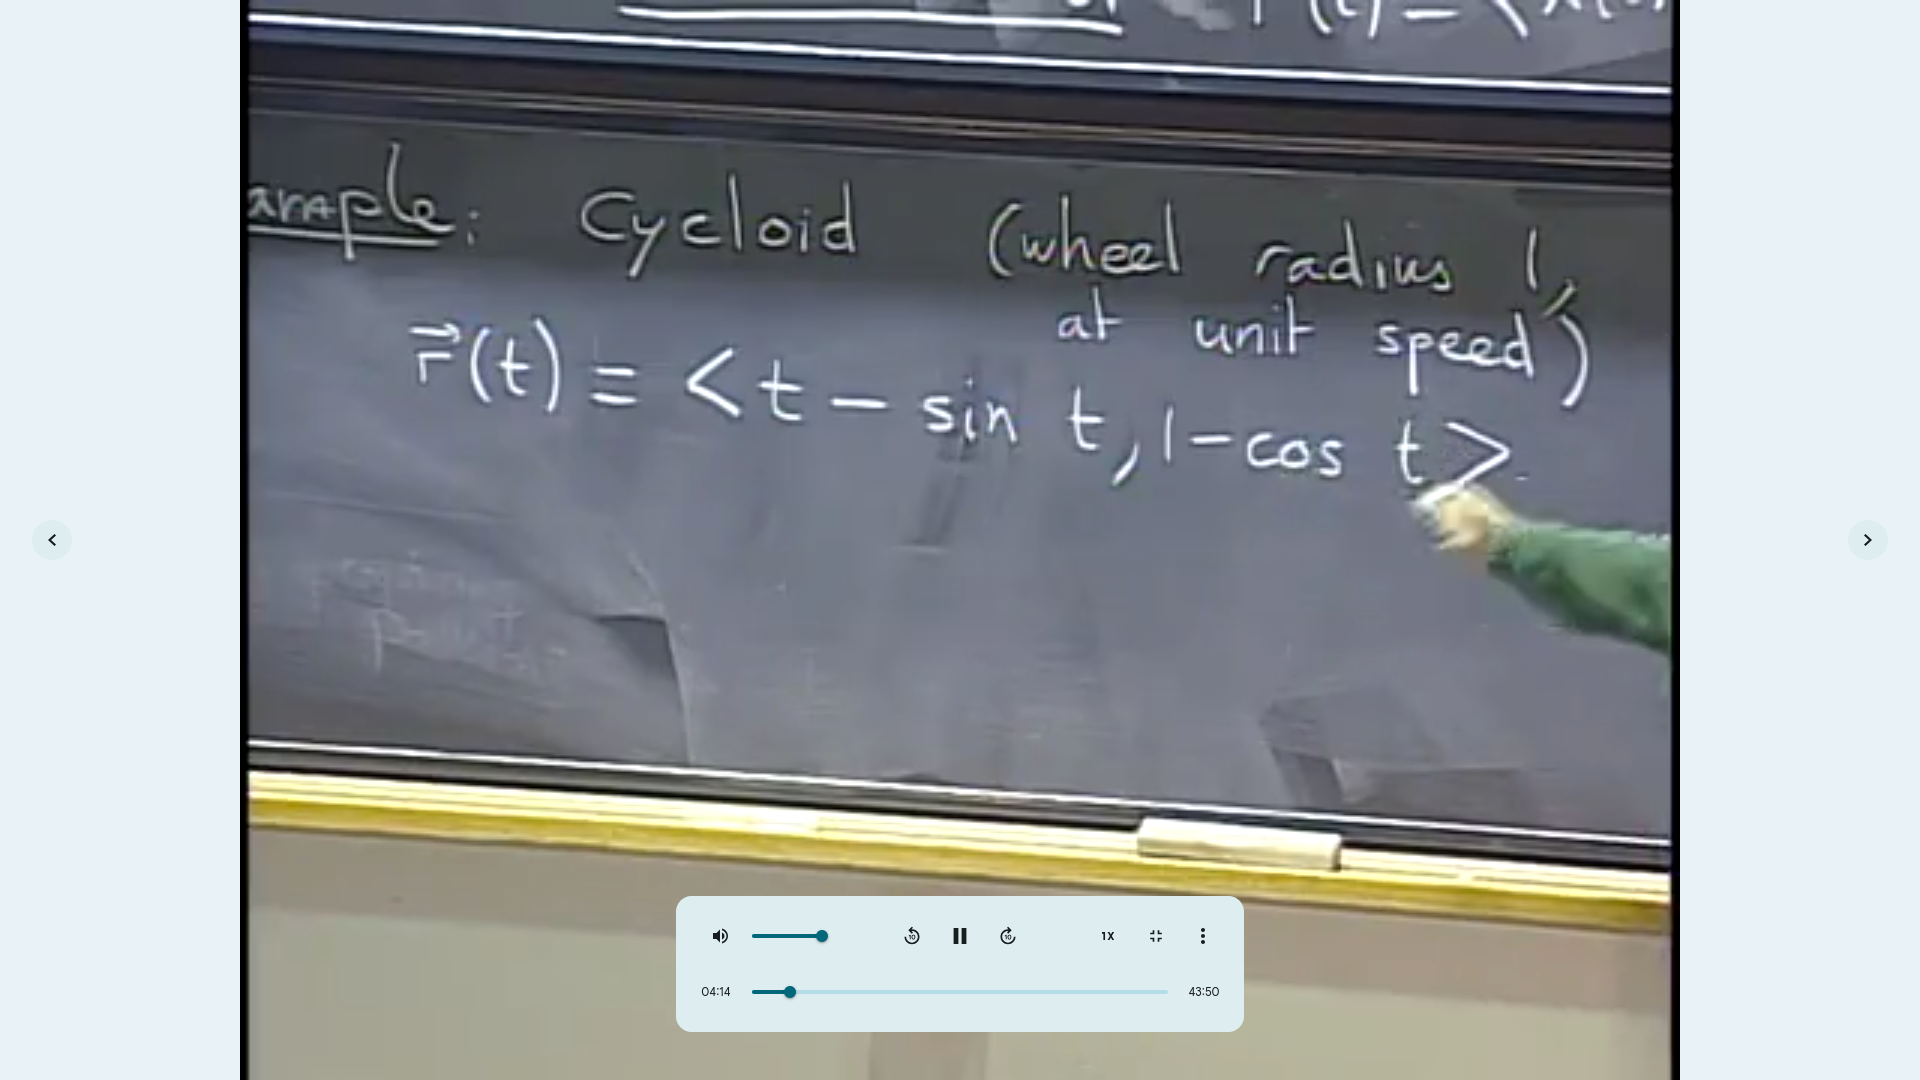 (t) = <
ample: Cycloid (wheel radius 1,
at unit speed)
r⃗(t) = <t - sin t, 1-cos t>
04:14
1X
43:50